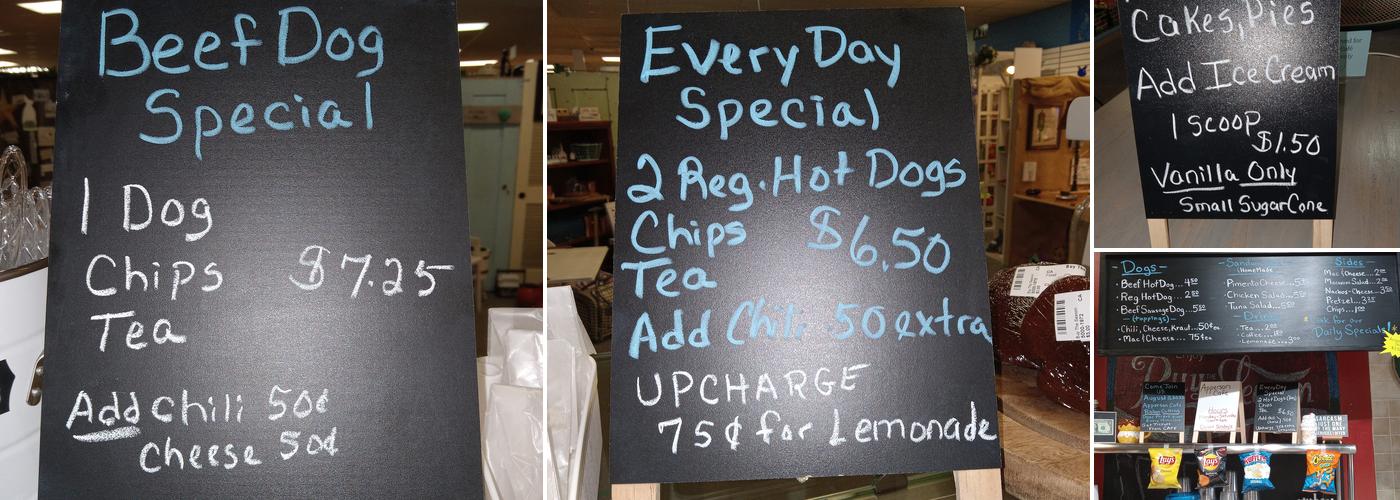 Beef Dog
Special
1 Dog
Chips $7.25
Tea
Add chili 50¢
cheese 50¢
Every Day
Special
2 Reg. Hot Dogs
Chips $6.50
Tea
Add Chili 50 extra
UPCHARGE
75¢ for Lemonade
Cakes, Pies
Add Ice Cream
1 scoop
$1.50
Vanilla Only
Small Sugar Cone
Dogs
Beef Hot Dog
Reg Hot Dog
Beef Sausage Dog
(toppings)
Chili, Cheese, Kraut...50¢ea.
Mac & Cheese... 75¢ea
HomeMade
Pimento Cheese
Chicken Salad
Tuna Salad
Drinks
Tea
Coffee
Lemonade
Sides
Mac & Cheese
Macaroni Salad
Nachos-Cheese
Pretzel
Chips
ask for our
Daily Specials
Come Join
US
Apperson
Hours
Every Day
Special
2 Hot Dogs
Chips
Tea $6.50
Lay's
Lay's
Ruffles
Cheetos